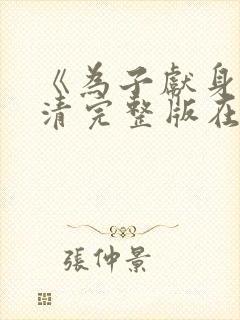 《為子獻身
清完整版在
張仲景